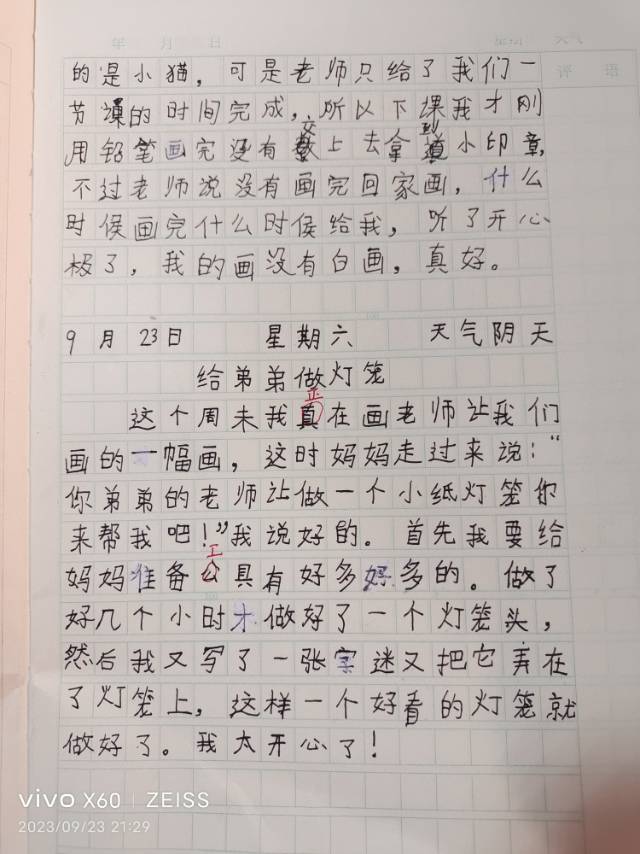 年 月 日 星期 天气
评语
的是小猫，可是老师只给了我们一
节课的时间完成，所以下课我才刚
用铅笔画完没有交上去拿到小印章，
不过老师说没有画完回家画，什么
时候画完什么时候给我，听了开心
极了，我的画没有白画，真好。
9月23日 星期六 天气阴天
给弟弟做灯笼
正
这个周未我真在画老师让我们
画的一幅画，这时妈妈走过来说：“
你弟弟的老师让做一个小纸灯笼你
来帮我吧！”我说好的。首先我要给
工
妈妈准备公具有好多好多的。做了
好几个小时才做好了一个灯笼头，
然后我又写了一张字迷又把它弄在
了灯笼上，这样一个好看的灯笼就
做好了。我太开心了！
vivo X60 | ZEISS
2023/09/23 21:29